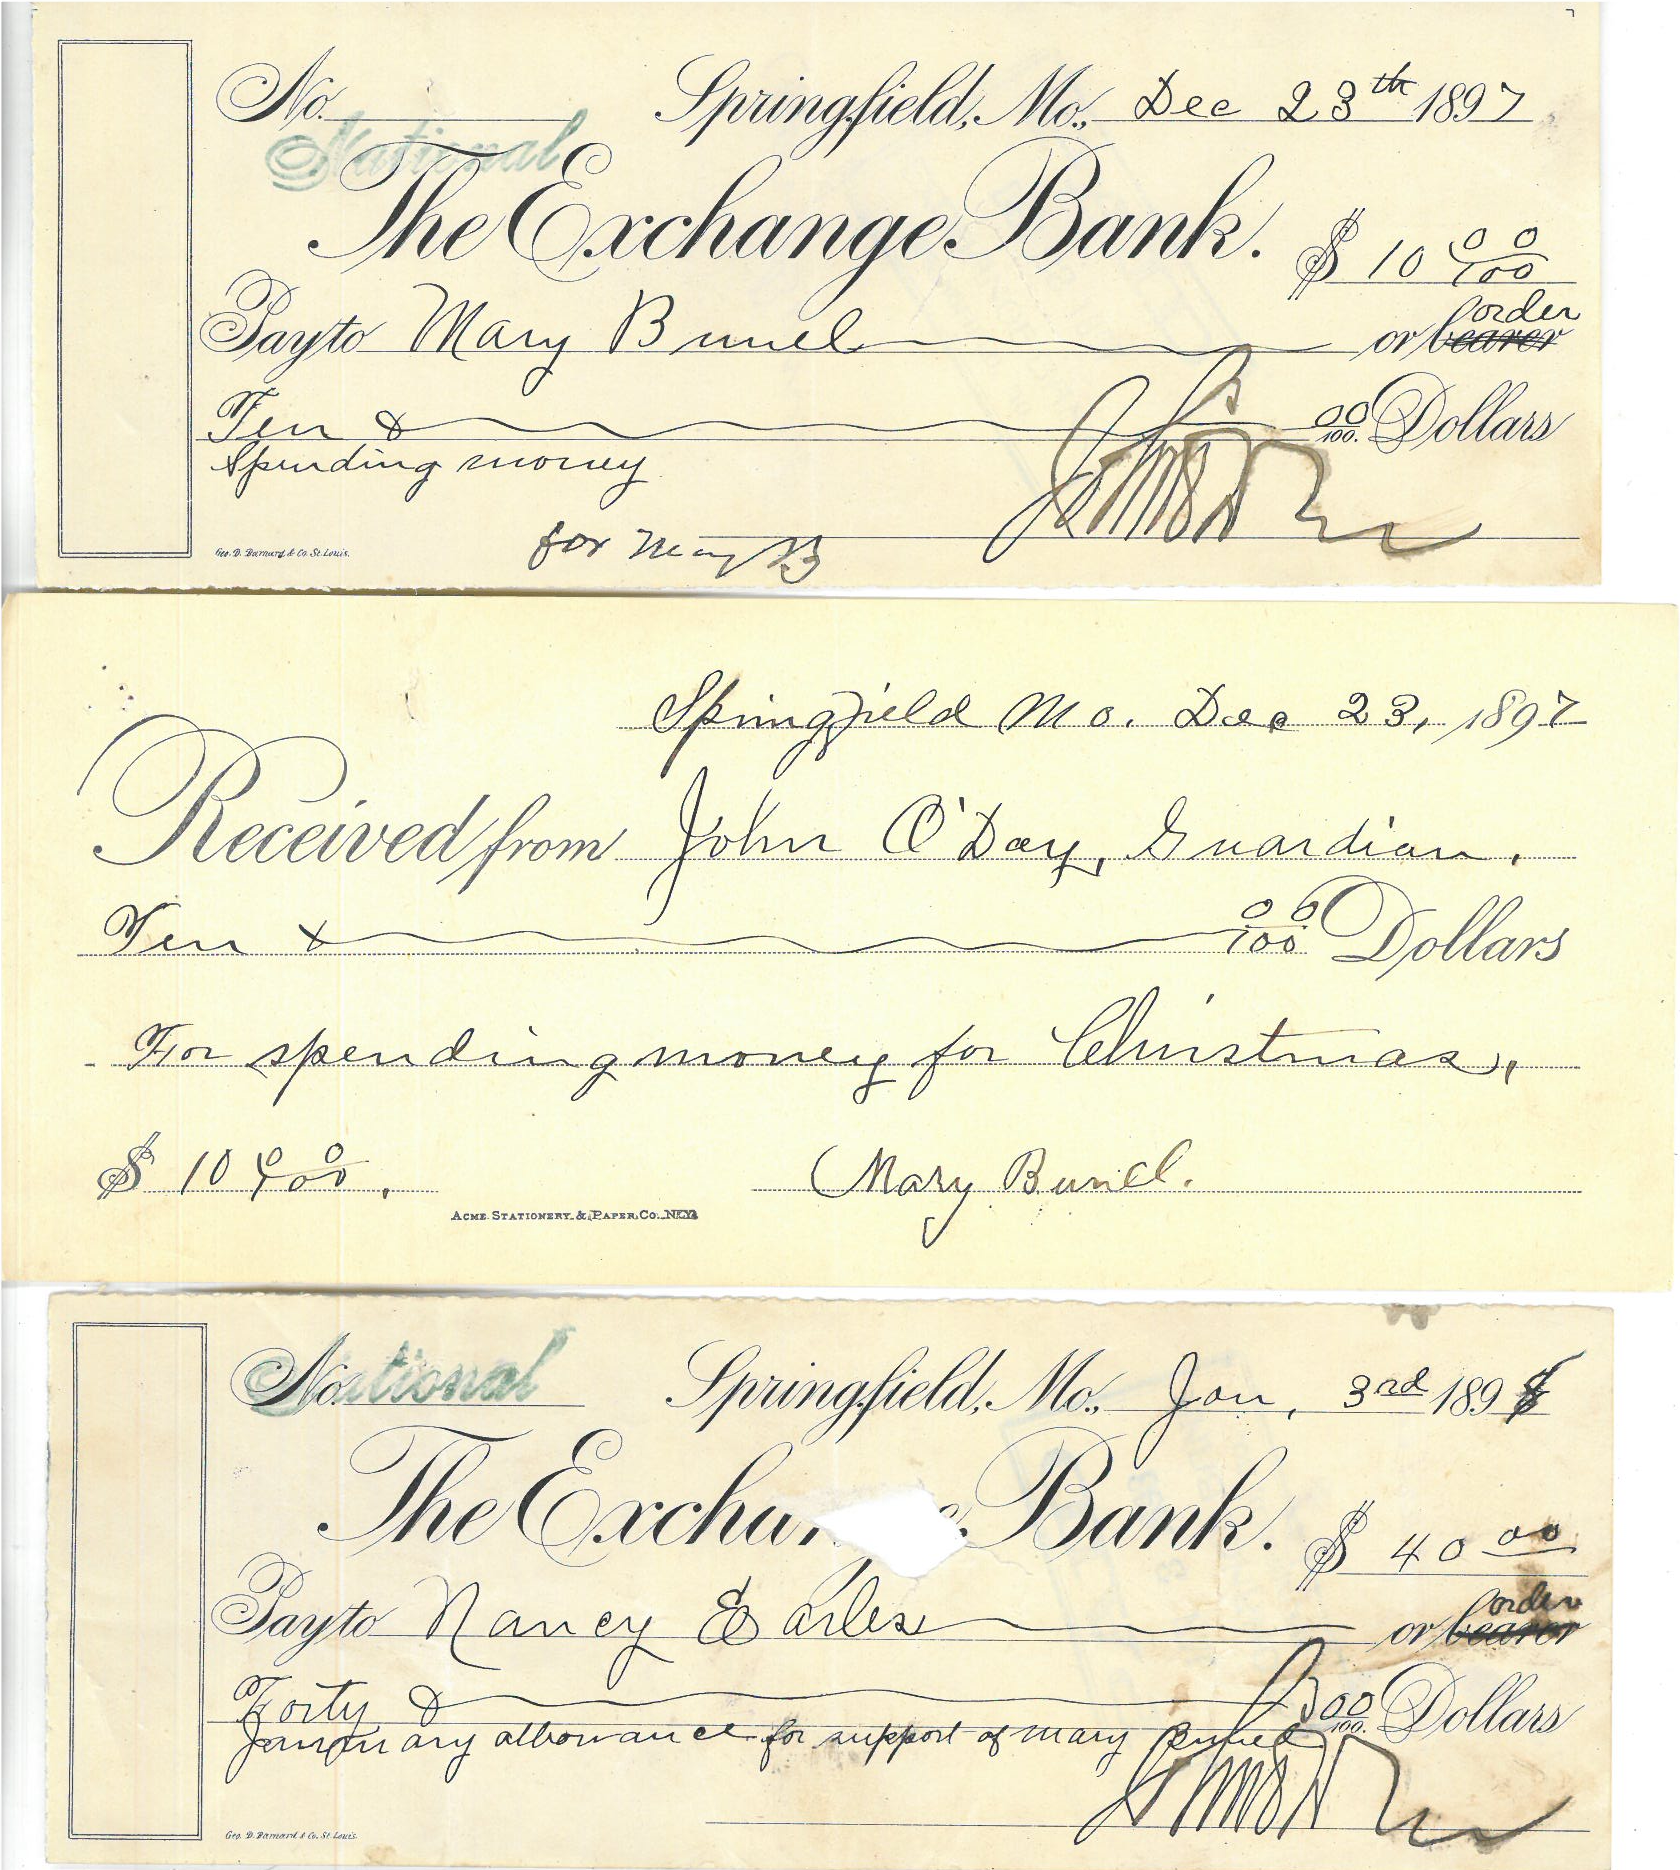 No. Springfield, Mo., Dec 23th 1897
National
The Exchange Bank.
$ 10 00/100
Pay to Mary Bunel or bearer order
Ten & 00/100 Dollars
Spending money
for Mary B
Geo. D. Barnard & Co. St. Louis.
Springfield Mo. Dec 23, 1897
Received from John O'Day, Guardian.
Ten & 00/100 Dollars
For spending money for Christmas,
$ 10 00/100. Mary Bunel.
ACME STATIONERY & PAPER CO. N.Y.
No. National Springfield, Mo., Jan, 3rd 1898
The Exchange Bank.
$ 40 00
Pay to Nancy Earles or bearer order
Forty & 00/100 Dollars
January allowance for support of Mary Bunel
Geo. D. Barnard & Co. St. Louis.